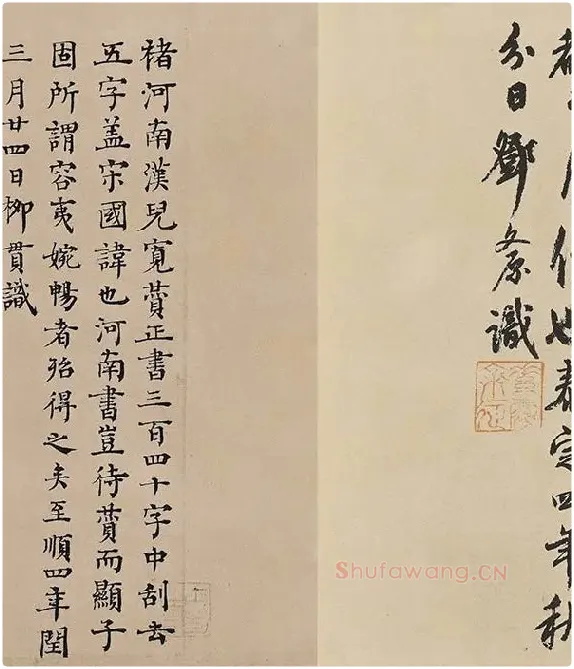 也泰定四年秋
分日鄧文原識
褚河南漢兒寛賛正書三百四十字中刮去
五字盖宋國諱也河南書豈待賛而顯子
固所謂容夷婉暢者殆得之矣至順四年閏
三月廿四日柳貫識
Shufawang.CN